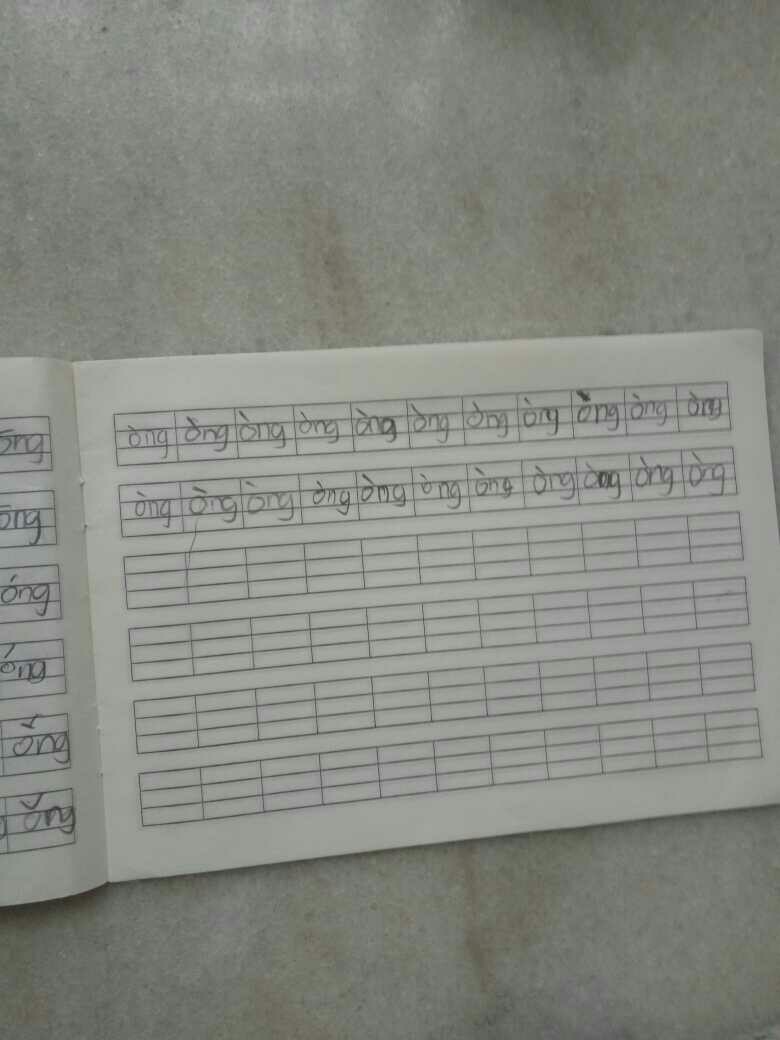 óng
óng
ǒng
ǒng
òng òng òng òng òng òng òng òng òng òng òng
òng òng òng òng òng òng òng òng òng òng òng